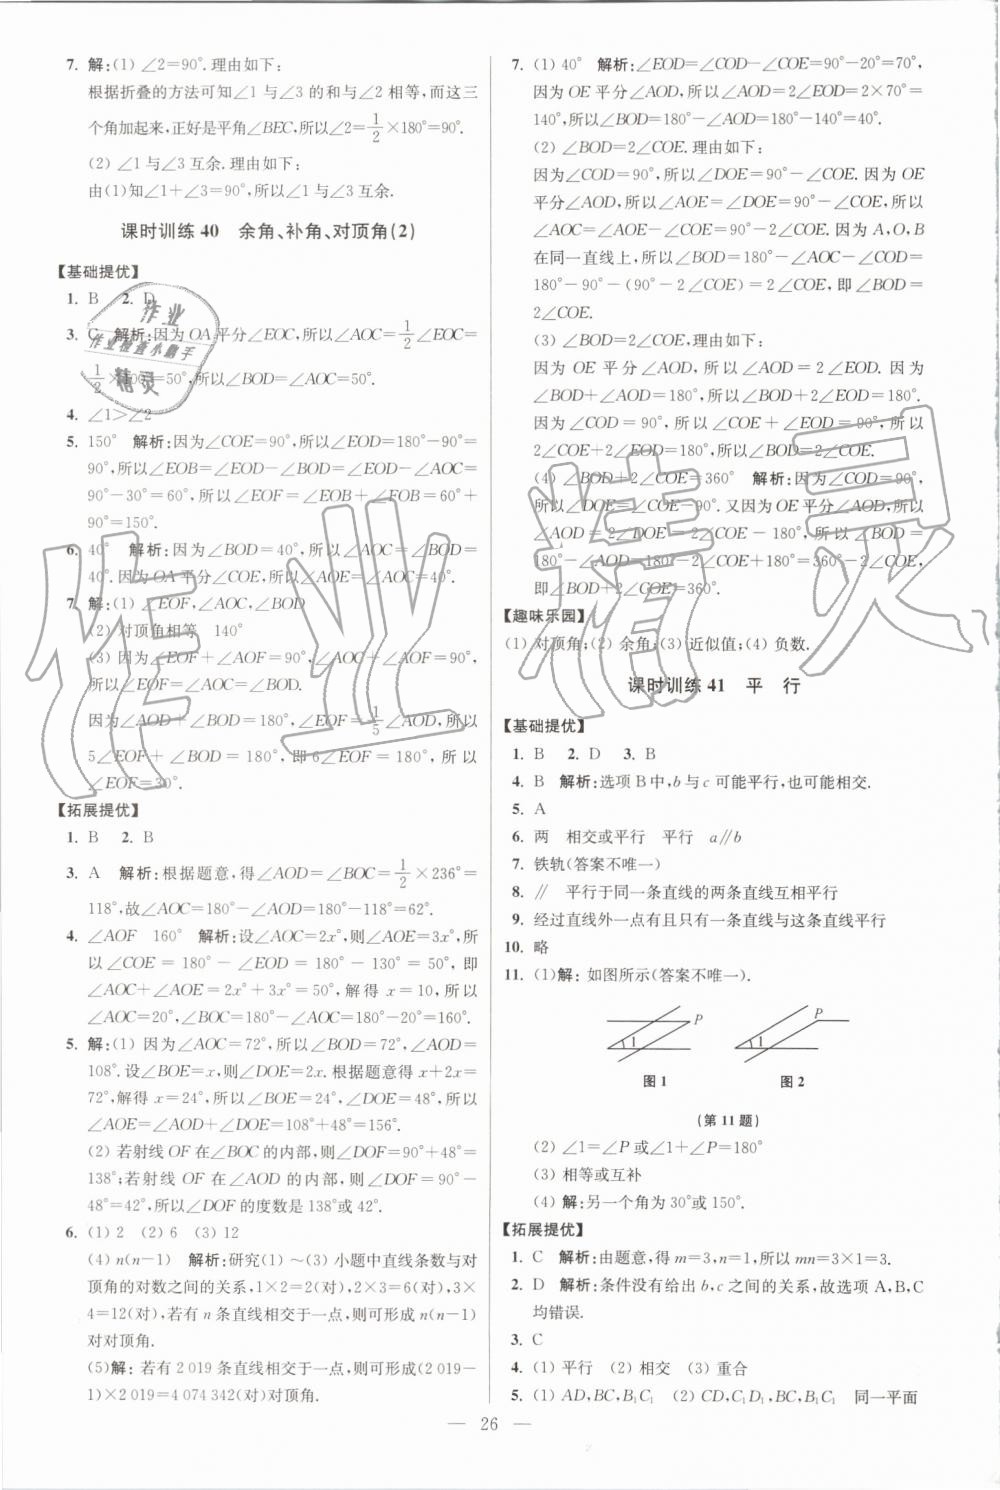 7. 解:(1) ∠2=90°.理由如下:
根据折叠的方法可知∠1与∠3的和与∠2相等,而这三
个角加起来,正好是平角∠BEC,所以∠2=1/2×180°=90°.
(2) ∠1与∠3互余.理由如下:
由(1)知∠1+∠3=90°,所以∠1与∠3互余.
课时训练40 余角、补角、对顶角(2)
【基础提优】
1. B 2. D
3. C 解析:因为OA平分∠EOC,所以∠AOC=1/2∠EOC=
1/2×100°=50°,所以∠BOD=∠AOC=50°.
4. ∠1>∠2
5. 150° 解析:因为∠COE=90°,所以∠EOD=180°-90°=
90°,所以∠EOB=∠EOD-∠BOD=∠EOD-∠AOC=
90°-30°=60°,所以∠EOF=∠EOB+∠FOB=60°+
90°=150°.
6. 40° 解析:因为∠BOD=40°,所以∠AOC=∠BOD=
40°.因为OA平分∠COE,所以∠AOE=∠AOC=40°.
7. 解:(1) ∠EOF,∠AOC,∠BOD
(2) 对顶角相等 140°
(3) 因为∠EOF+∠AOF=90°,∠AOC+∠AOF=90°,
所以∠EOF=∠AOC=∠BOD.
因为∠AOD+∠BOD=180°,∠EOF=1/5∠AOD,所以
5∠EOF+∠BOD=180°,即6∠EOF=180°,所以
∠EOF=30°.
【拓展提优】
1. B 2. B
3. A 解析:根据题意,得∠AOD=∠BOC=1/2×236°=
118°,故∠AOC=180°-∠AOD=180°-118°=62°.
4. ∠AOF 160° 解析:设∠AOC=2x°,则∠AOE=3x°,所
以∠COE=180°-∠EOD=180°-130°=50°,即
∠AOC+∠AOE=2x°+3x°=50°,解得x=10,所以
∠AOC=20°,∠BOC=180°-∠AOC=180°-20°=160°.
5. 解:(1) 因为∠AOC=72°,所以∠BOD=72°,∠AOD=
108°.设∠BOE=x,则∠DOE=2x.根据题意得x+2x=
72°,解得x=24°,所以∠BOE=24°,∠DOE=48°,所以
∠AOE=∠AOD+∠DOE=108°+48°=156°.
(2) 若射线OF在∠BOC的内部,则∠DOF=90°+48°=
138°;若射线OF在∠AOD的内部,则∠DOF=90°-
48°=42°,所以∠DOF的度数是138°或42°.
6. (1) 2 (2) 6 (3) 12
(4) n(n-1) 解析:研究(1)~(3)小题中直线条数与对
顶角的对数之间的关系,1×2=2(对),2×3=6(对),3×
4=12(对),若有n条直线相交于一点,则可形成n(n-1)
对对顶角.
(5)解:若有2 019条直线相交于一点,则可形成(2 019-
1)×2 019=4 074 342(对)对顶角.
7. (1) 40° 解析:∠EOD=∠COD-∠COE=90°-20°=70°,
因为OE平分∠AOD,所以∠AOD=2∠EOD=2×70°=
140°,所以∠BOD=180°-∠AOD=180°-140°=40°.
(2) ∠BOD=2∠COE.理由如下:
因为∠COD=90°,所以∠DOE=90°-∠COE.因为OE
平分∠AOD,所以∠AOE=∠DOE=90°-∠COE,所以
∠AOC=∠AOE-∠COE=90°-2∠COE.因为A,O,B
在同一直线上,所以∠BOD=180°-∠AOC-∠COD=
180°-90°-(90°-2∠COE)=2∠COE,即∠BOD=
2∠COE.
(3) ∠BOD=2∠COE,理由如下:
因为OE平分∠AOD,所以∠AOD=2∠EOD.因为
∠BOD+∠AOD=180°,所以∠BOD+2∠EOD=180°.
因为∠COD=90°,所以∠COE+∠EOD=90°,所以
2∠COE+2∠EOD=180°,所以∠BOD=2∠COE.
(4) ∠BOD+2∠COE=360° 解析:因为∠COD=90°,
所以∠DOE=∠COE-90°.又因为OE平分∠AOD,所以
∠AOD=2∠DOE=2∠COE-180°,所以∠BOD=
180°-∠AOD=180°-2∠COE+180°=360°-2∠COE,
即∠BOD+2∠COE=360°.
【趣味乐园】
(1) 对顶角;(2) 余角;(3) 近似值;(4) 负数.
课时训练41 平 行
【基础提优】
1. B 2. D 3. B
4. B 解析:选项B中,b与c可能平行,也可能相交.
5. A
6. 两 相交或平行 平行 a∥b
7. 铁轨(答案不唯一)
8. ∥ 平行于同一条直线的两条直线互相平行
9. 经过直线外一点有且只有一条直线与这条直线平行
10. 略
11. (1)解:如图所示(答案不唯一).
P 1 P 1
图1 图2
(第11题)
(2) ∠1=∠P或∠1+∠P=180°
(3) 相等或互补
(4) 解:另一个角为30°或150°.
【拓展提优】
1. C 解析:由题意,得m=3,n=1,所以mn=3×1=3.
2. D 解析:条件没有给出b,c之间的关系,故选项A,B,C
均错误.
3. C
4. (1) 平行 (2) 相交 (3) 重合
5. (1) AD,BC,B₁C₁ (2) CD,C₁D₁,BC,B₁C₁ 同一平面
— 26 —
作业
作业检查小助手
精灵
作业精灵